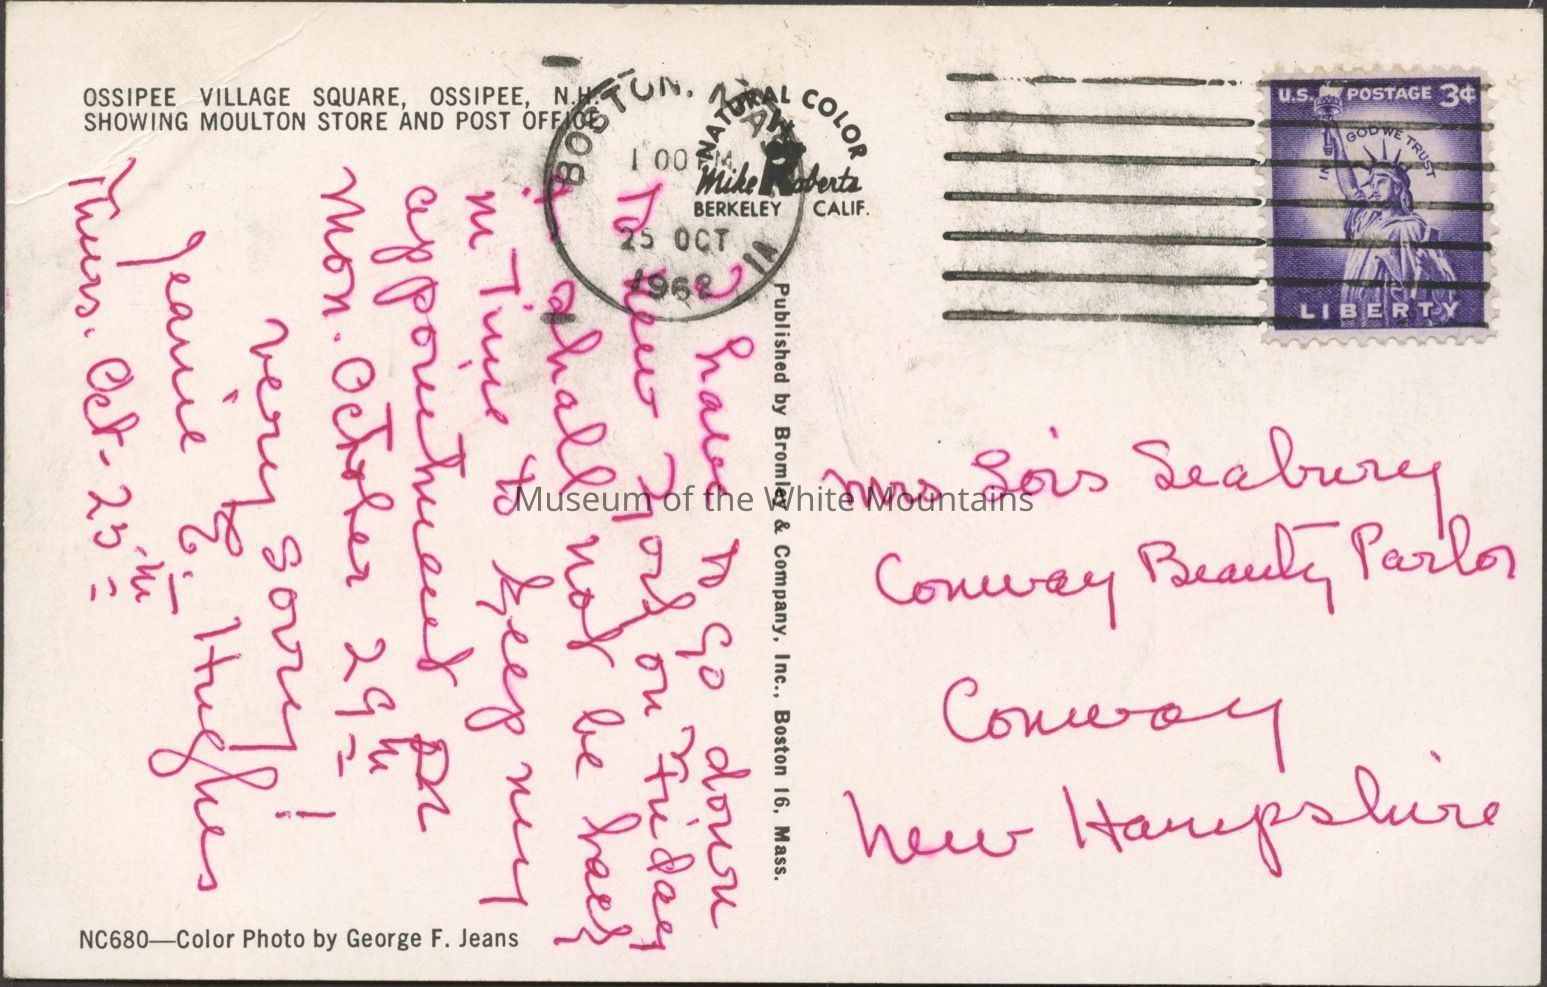 OSSIPEE VILLAGE SQUARE, OSSIPEE, N.H.
SHOWING MOULTON STORE AND POST OFFICE
BOSTON, MASS
1 00 PM
25 OCT
1962
1A
NATURAL COLOR
by
Mike Roberts
BERKELEY CALIF.
U.S. POSTAGE 3¢
IN GOD WE TRUST
LIBERTY
I have to go down
To New York on Friday
shall not be back
in Time to keep my
appointment
Mon. October 29th
Very Sorry!
Jeanie E. Hughes
Thurs. Oct. 25th
Published by Bromley & Company, Inc., Boston 16, Mass.
Mrs Lois Seabury
Conway Beauty Parlor
Conway
New Hampshire
NC680—Color Photo by George F. Jeans
Museum of the White Mountains